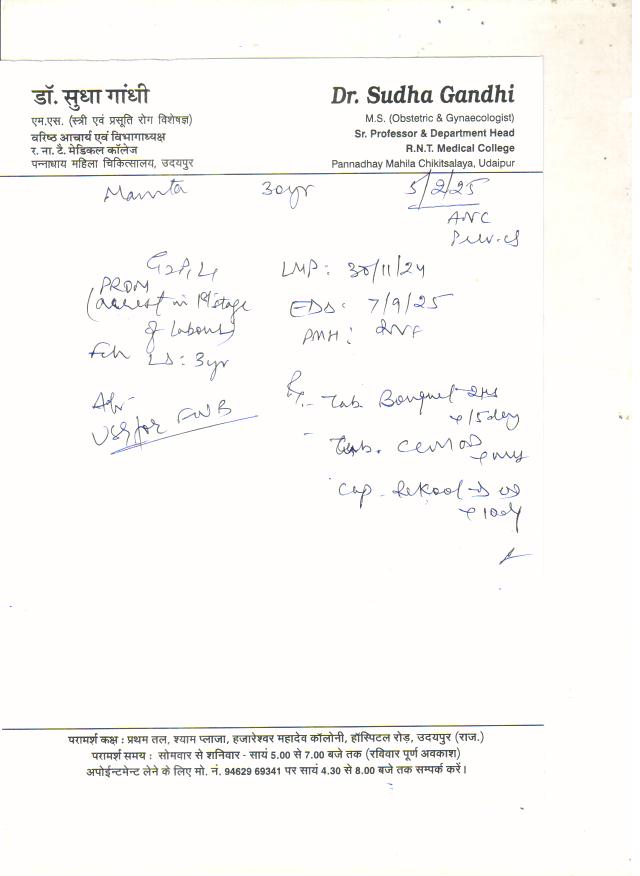 डॉ. सुधा गांधी
एम.एस. (स्त्री एवं प्रसूति रोग विशेषज्ञ)
वरिष्ठ आचार्य एवं विभागाध्यक्ष
र. ना. टै. मेडिकल कॉलेज
पन्नाधाय महिला चिकित्सालय, उदयपुर
Dr. Sudha Gandhi
M.S. (Obstetric & Gynaecologist)
Sr. Professor & Department Head
R.N.T. Medical College
Pannadhay Mahila Chikitsalaya, Udaipur
Mamta 30yr 5/2/25
ANC
G2P1L1
PROM
(arrest in Ist stage
of labour)
LD: 3yr
LMP: 30/11/24
EDD: 7/9/25
PMH:
Adv
USG for FWB
Rx
Tab.
x 15day
Tab.
Cap.
x 10day
परामर्श कक्ष : प्रथम तल, श्याम प्लाजा, हजारेश्वर महादेव कॉलोनी, हॉस्पिटल रोड़, उदयपुर (राज.)
परामर्श समय : सोमवार से शनिवार - सायं 5.00 से 7.00 बजे तक (रविवार पूर्ण अवकाश)
अपोईन्टमेन्ट लेने के लिए मो. नं. 94629 69341 पर सायं 4.30 से 8.00 बजे तक सम्पर्क करें।